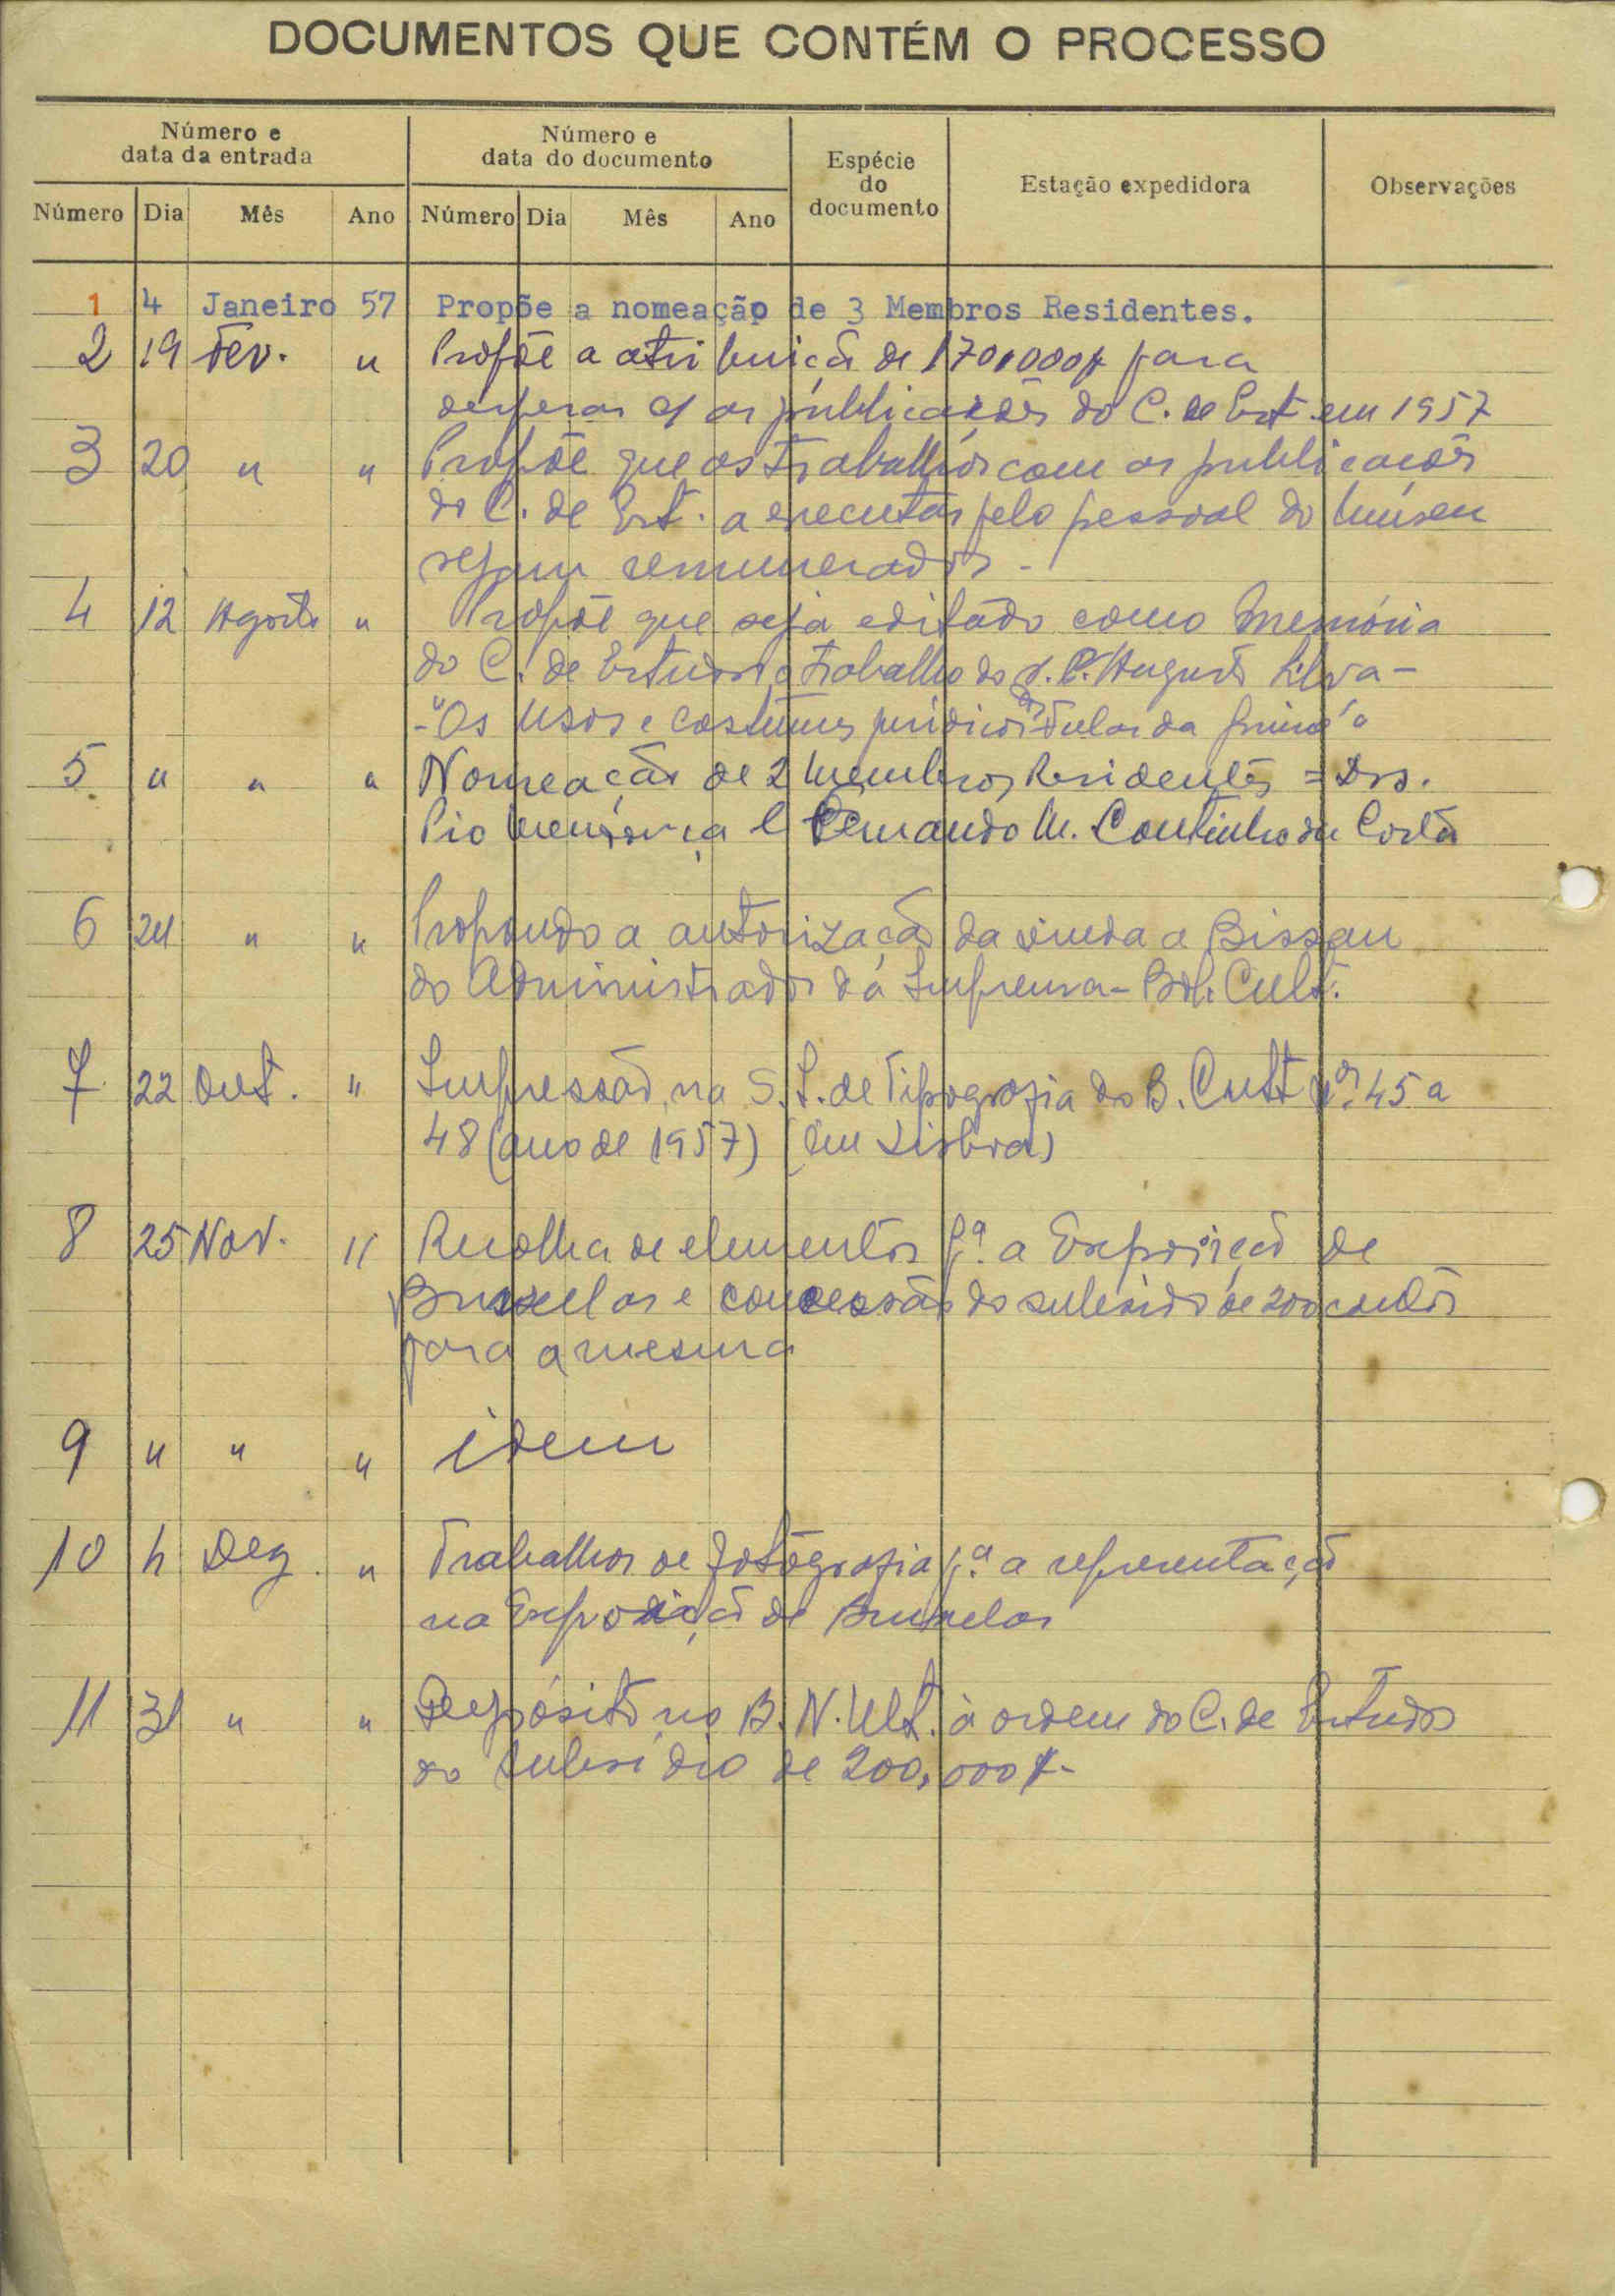 DOCUMENTOS QUE CONTÉM O PROCESSO
Número e
data da entrada
Número e
data do documento
Espécie
do
documento
Estação expedidora
Observações
Número Dia Mês Ano Número Dia Mês Ano
1 4 Janeiro 57 Propõe a nomeação de 3 Membros Residentes.
2 19 Fev. " Propõe a atribuição de 170.000$ para
despesas c/ as publicações do C. de Est. em 1957
3 20 " " Propõe que os trabalhos com as publicações
do C. de Est. a executar pelo pessoal do Museu
sejam remunerados.
4 12 Agosto " Propõe que seja editado como Memória
do C. de Estudos o trabalho do Augusto Silva -
- "Os Usos e Costumes jurídicos dos Fulas da Guiné"
5 " " " Nomeação de 2 Membros Residentes = Drs.
Pio e Fernando M. Coutinho da Costa
6 24 " " Propondo a autorização da vinda a Bissau
do Administrador da Imprensa - Bol. Cult.
7 22 Out. " Impressão, na S. T. de Tipografia do B. Cult nos. 45 a
48 (ano de 1957) (em Lisboa)
8 25 Nov. " Recolha de elementos p.a a Exposição de
Bruxelas e concessão do subsídio de 200 contos
para a mesma
9 " " " idem
10 4 Dez. " Trabalhos de fotografia p.a a representação
na Exposição de Bruxelas
11 31 " " Depósito no B. N. Ult. à ordem do C. de Estudos
do subsídio de 200.000$-